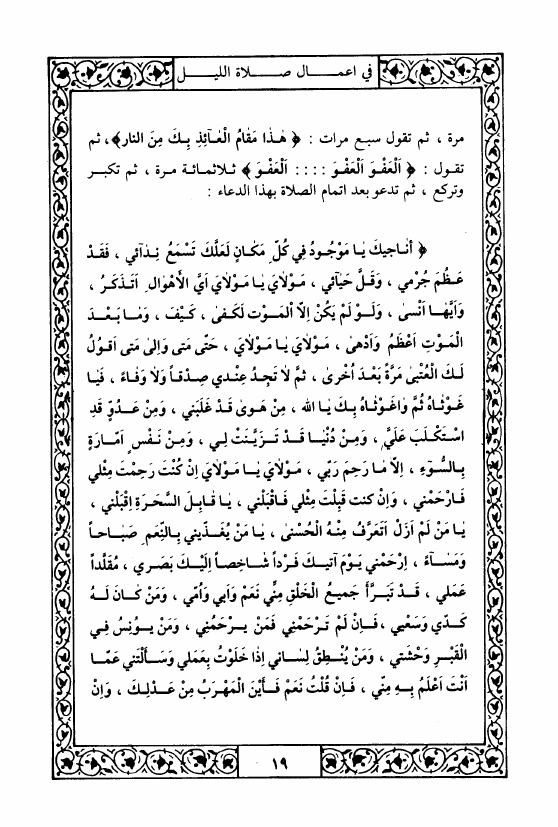 في اعمـــال صـــلاة الليـــل
مرة ، ثم تقول سبع مرات : ﴿ هٰذا مَقامُ الْعـائِذِ بِـكَ مِنَ النار﴾، ثم
تقـول : ﴿ اَلْعَفْوَ اَلْعَفْوَ : : : : اَلْعَفْوَ ﴾ ثـلاثمـائـة مـرة ، ثم تكبـر
وتركع ، ثم تدعو بعد اتمام الصلاة بهذا الدعاء :
﴿ أُناجيكَ يٰا مَوْجُودُ فِي كُلِّ مَكـانٍ لَعَلَّكَ تَسْمَعُ نِـدٰآئي ، فَقَـدْ
عَـظُمَ جُرْمي ، وَقَـلَّ حَيٰآئي ، مَـوْلٰايَ يٰـا مَـوْلٰايَ اَيَّ الْأَهْوالِ اَتَذَكَّـرُ ،
وَاَيَّهٰـا اَنْسىٰ ، وَلَـوْ لَمْ يَكُنْ اِلاّ الْمَـوْت لَكَفىٰ ، كَيْفَ ، وَمٰـا بَعْـدَ
الْمَوْتِ اَعْظَمُ وَاَدْهىٰ ، مَـوْلٰايَ يٰا مَـوْلٰايَ ، حَتّى مَتى وَاِلىٰ مَتى اَقُولُ
لَـكَ الْعُتْبىٰ مَرَّةً بَعْـدَ اُخْرىٰ ، ثُمَّ لاٰ تَجِـدُ عِنْدي صِـدْقـاً وَلاٰ وَفـاءً ، فَيٰـا
غَـوْثٰاهُ ثُمَّ وٰاغَوْثٰاهُ بِـكَ يٰا الله ، مِنْ هَـوىً قَـدْ غَلَبَني ، وَمِنْ عَـدُوٍّ قَدِ
اسْتَكْلَبَ عَلَيَّ ، وَمِـنْ دُنْيٰـا قَـدْ تَـزَيَّنَتْ لِـي ، وَمِـنْ نَفْسٍ اَمّـارَةٍ
بِـالسُّـوٓءِ ، اِلاّ مٰـا رَحِمَ رَبّي ، مَـوْلٰايَ يٰـا مَـوْلٰايَ اِنْ كُنْتَ رَحِمْتَ مِثْلي
فَـارْحَمْني ، وَاِنْ كنت قَبِلْتَ مِثْلي فَـاقْبَلْني ، يٰـا قٰابِـلَ السَّحَرَةِ اِقْبَلْني ،
يٰا مَنْ لَمْ اَزَلْ اَتَعَرَّفُ مِنْهُ الْحُسْنىٰ ، يٰا مَنْ يُغَذّيني بِالنِّعَمِ صَبٰـاحاً
وَمَسٰـآءً ، اِرْحَمْني يَـوْمَ آتيـكَ فَرْداً شٰـاخِصاً اِلَيْـكَ بَصَري ، مُقَلَّداً
عَمَلي ، قَـدْ تَبَـرَّأَ جَميعُ الْخَلْقِ مِنّي نَعَمْ وَاَبي وَاُمّي ، وَمَنْ كـانَ لَـهُ
كَدّي وَسَعْيي ، فَـاِنْ لَمْ تَـرْحَمْني فَمَنْ يَـرْحَمُني ، وَمَنْ يـونِسُ فِـي
الْقَبْـرِ وَحْشَتي ، وَمَنْ يُنْـطِقُ لِسٰـاني اِذٰا خَلَوْتُ بِعَملي وَسَـأَلْتَني عَمّـا
اَنْتَ اَعْلَمُ بِـهِ مِنّي ، فَـاِنْ قُلْتُ نَعَمْ فَـأَيْنَ الْمَهْـرَبُ مِنْ عَـدْلِـكَ ، وَاِنْ
١٩